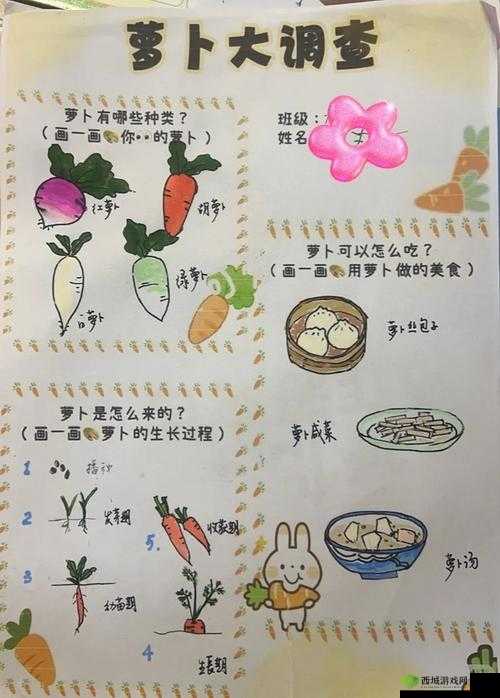 萝卜大调查
萝卜有哪些种类？
（画一画你··的萝卜）
红萝卜
胡萝卜
白萝卜
绿萝卜
班级：
姓名
萝卜可以怎么吃？
（画一画用萝卜做的美食）
萝卜丝包子
萝卜咸菜
萝卜汤
萝卜是怎么来的？
（画一画萝卜的生长过程）
1 播种
2 发芽期
3 幼苗期
4 生长期
5. 收获期
西城游戏网